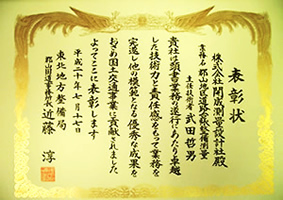 表彰状
株式会社 開成測量設計社殿
業務名 郡山地区道路台帳整備測量
主任技術者 武田哲男
貴社は頭書業務の遂行にあたり卓越
した技術力と責任感をもって業務を
完遂し他の模範となる優秀な成果を
おさめ国土交通事業に貢献されました
よってここに表彰します
平成二十年七月十七日
東北地方整備局
郡山国道事務所長 近藤 淳